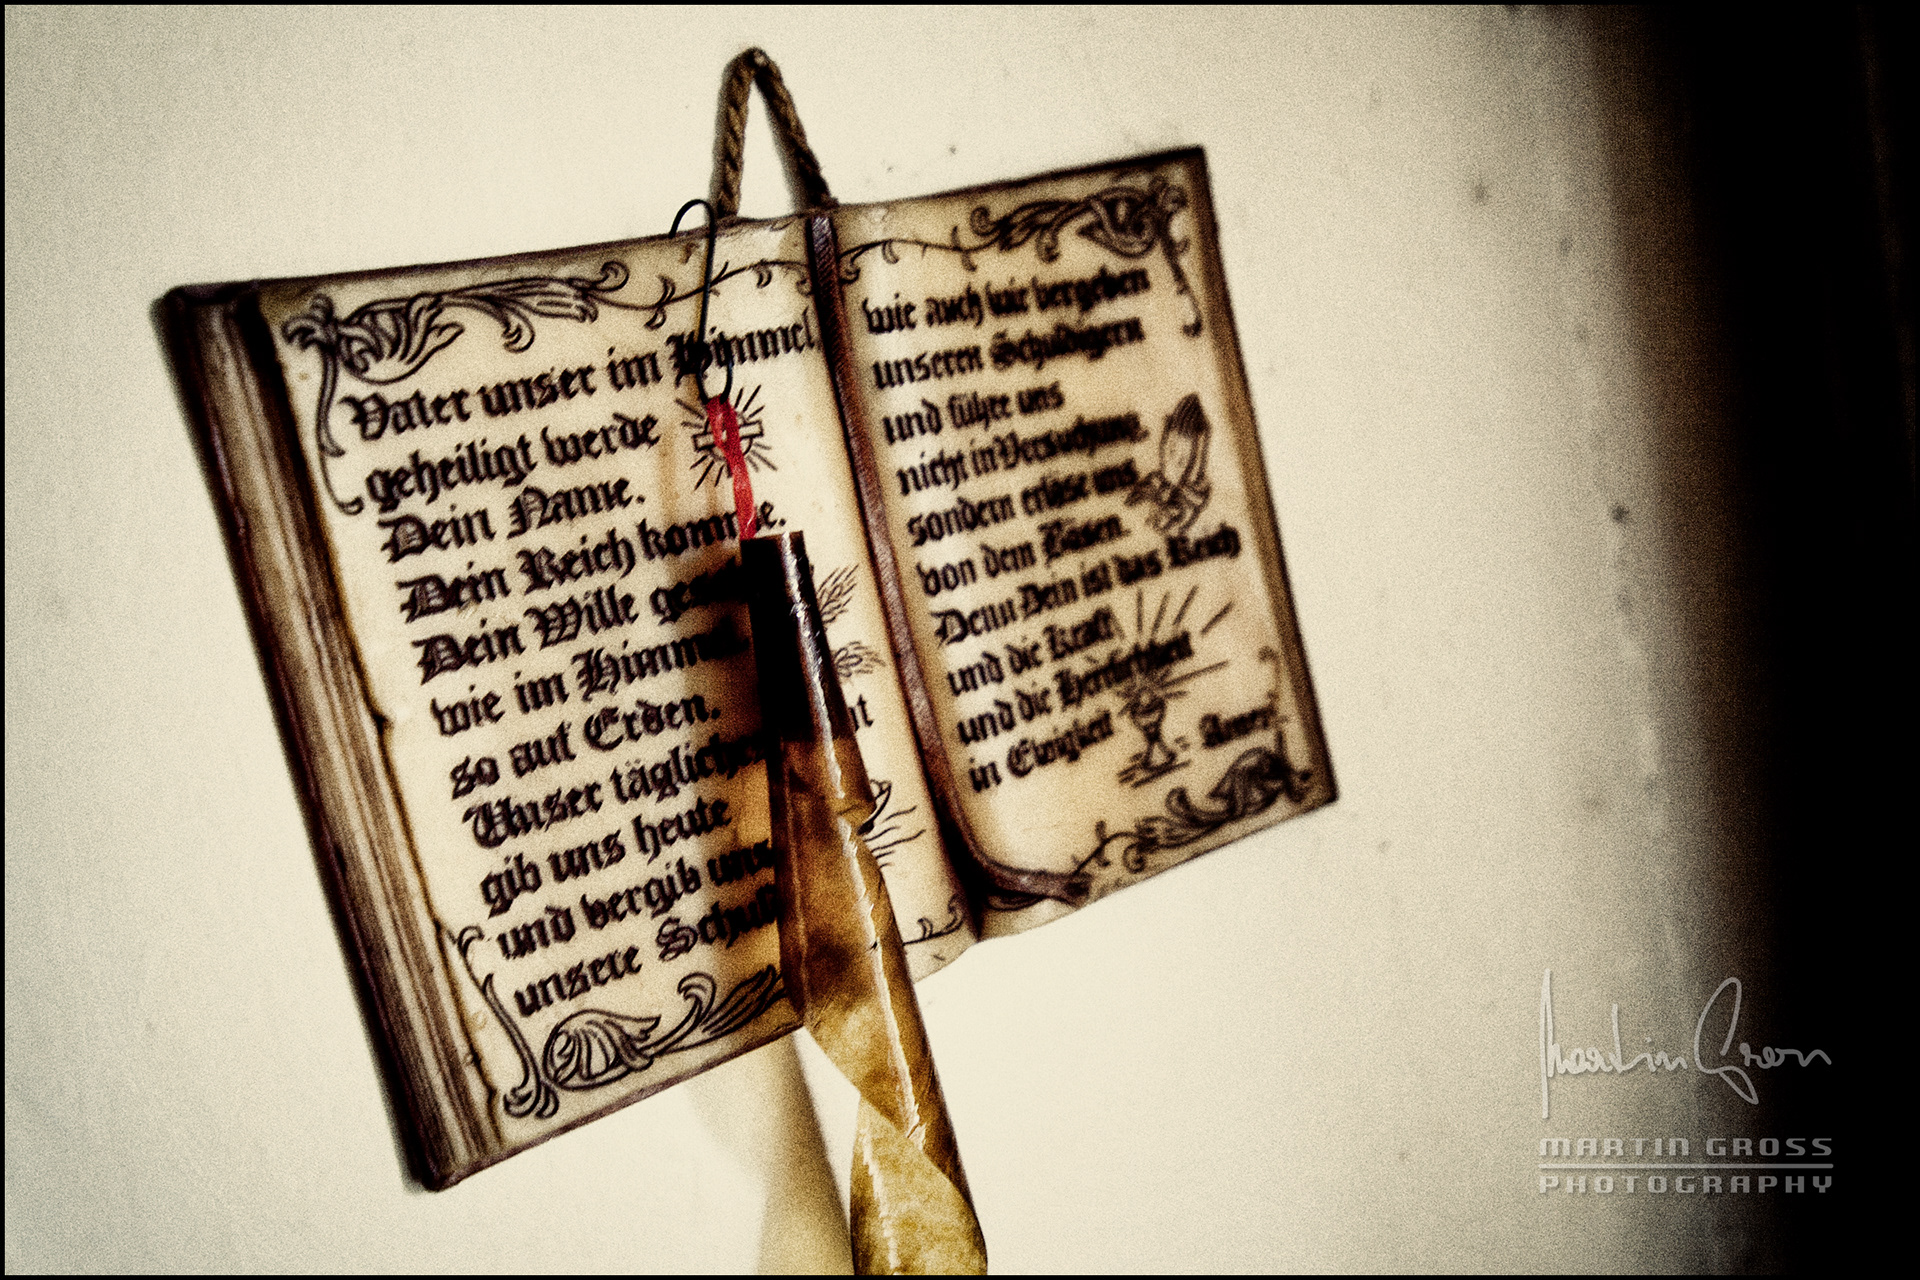 Vater unser im Himmel
geheiligt werde
Dein Name.
Dein Reich komme.
Dein Wille
wie im
so auf Erden.
Unser
gib uns heute
und vergib uns
unsere
wie auch wir vergeben
unseren Schuldigern
und führe uns
nicht in Versuchung.
sondern erlöse uns
von dem Bösen.
Denn Dein ist das Reich
und die Kraft
und die Herrlichkeit
in Ewigkeit - Amen.
Martin Gross
MARTIN GROSS
PHOTOGRAPHY